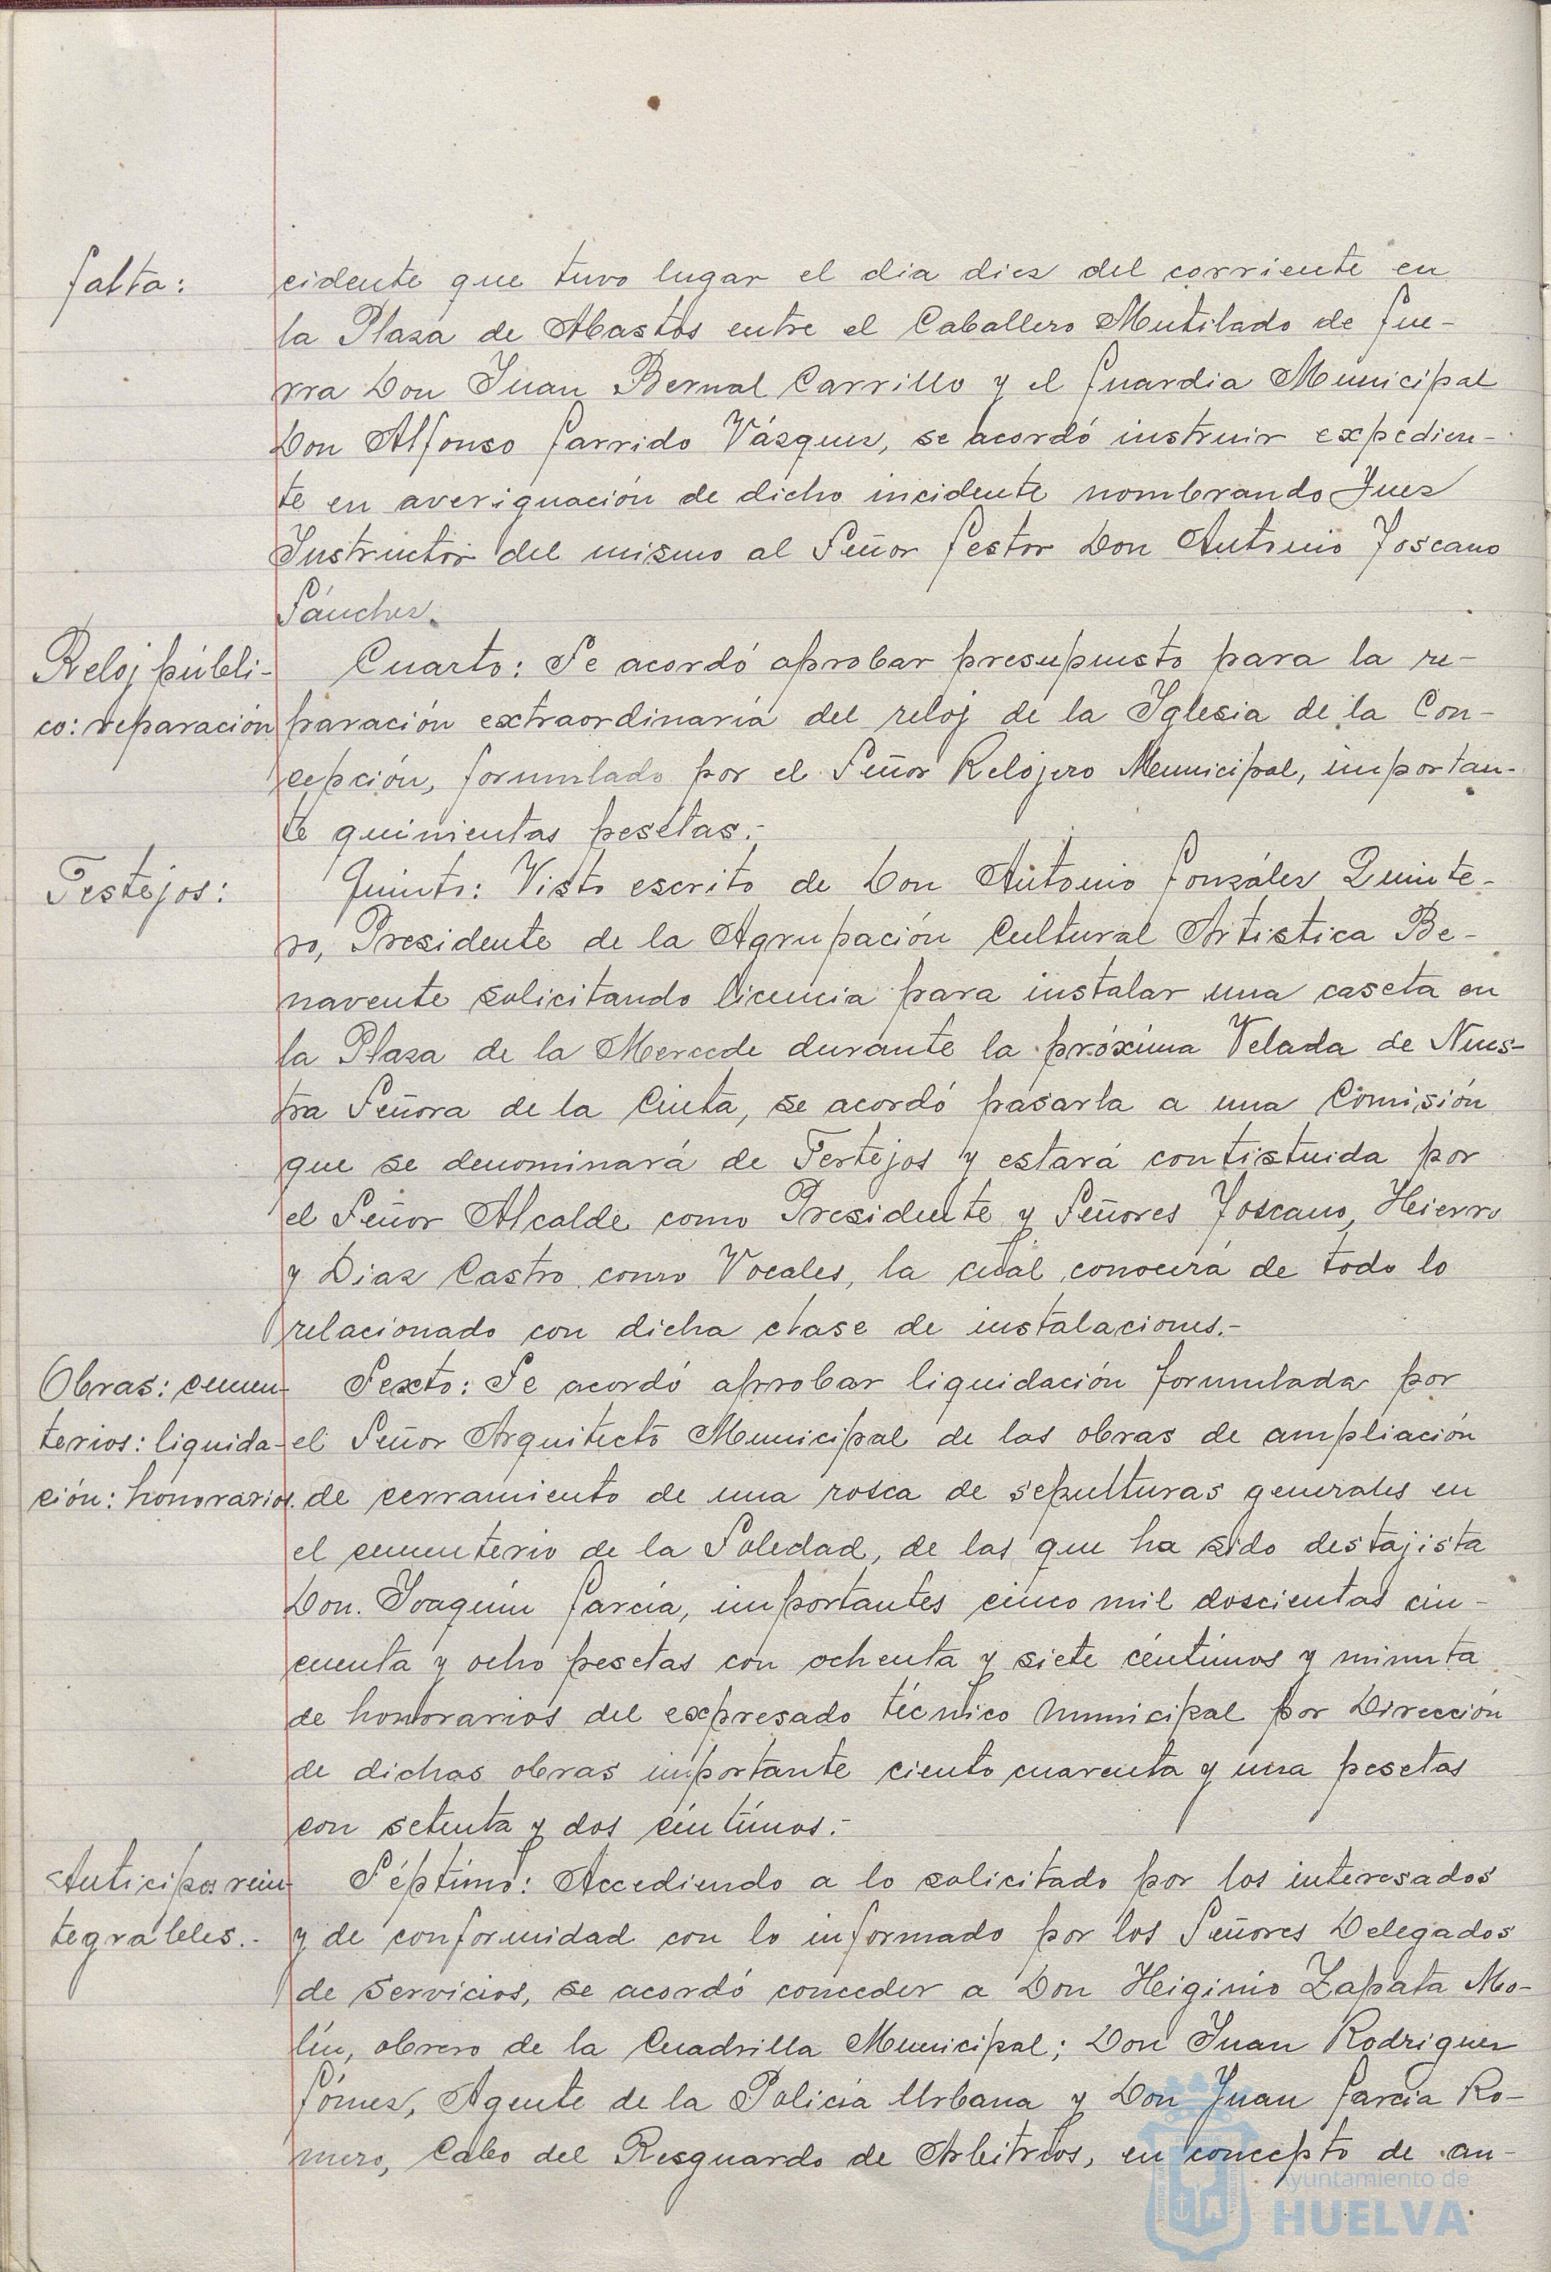 falta:
cidente que tuvo lugar el dia diez del corriente en
la Plaza de Abastos entre el Caballero Mutilado de Gue-
rra Don Juan Bernal Carrillo y el Guardia Municipal
Don Alfonso Garrido Vázquez, se acordó instruir expedien-
te en averiguación de dicho incidente nombrando Juez
Instructor del mismo al Señor Gestor Don Antonio Toscano
Sánchez.
Reloj públi-
co: reparación
Cuarto: Se acordó aprobar presupuesto para la re-
paración extraordinaria del reloj de la Iglesia de la Con-
cepción, formulado por el Señor Relojero Municipal, importan-
te quinientas pesetas.-
Festejos:
Quinto: Visto escrito de Don Antonio González Quinte-
ro, Presidente de la Agrupación Cultural Artistica Be-
navente solicitando licencia para instalar una caseta en
la Plaza de la Mercede durante la próxima Velada de Nues-
tra Señora de la Cinta, se acordó pasarla a una Comisión
que se denominará de Festejos y estará contistuida por
el Señor Alcalde como Presidente y Señores Toscano, Hierro
y Diaz Castro como Vocales, la cual conocerá de todo lo
relacionado con dicha clase de instalaciones.-
Obras: cemen-
terios: liquida-
ción: honorarios.
Sexto: Se acordó aprobar liquidación formulada por
el Señor Arquitecto Municipal de las obras de ampliación
de cerramiento de una rosca de sepulturas generales en
el cementerio de la Soledad, de las que ha sido destajista
Don Joaquín García, importantes cinco mil doscientas cin-
cuenta y ocho pesetas con ochenta y siete céntimos y minuta
de honorarios del expresado técnico municipal por Dirección
de dichas obras importante ciento cuarenta y una pesetas
con setenta y dos céntimos.-
Anticipos rein-
tegrables.-
Séptimo: Accediendo a lo solicitado por los interesados
y de conformidad con lo informado por los Señores Delegados
de servicios, se acordó conceder a Don Heiginio Zapata Mo-
lín, obrero de la Cuadrilla Municipal; Don Juan Rodriguez
Gómez, Agente de la Policía Urbana y Don Juan García Ro-
mero, Cabo del Resguardo de Arbitrios, en concepto de an-
Ayuntamiento de
HUELVA